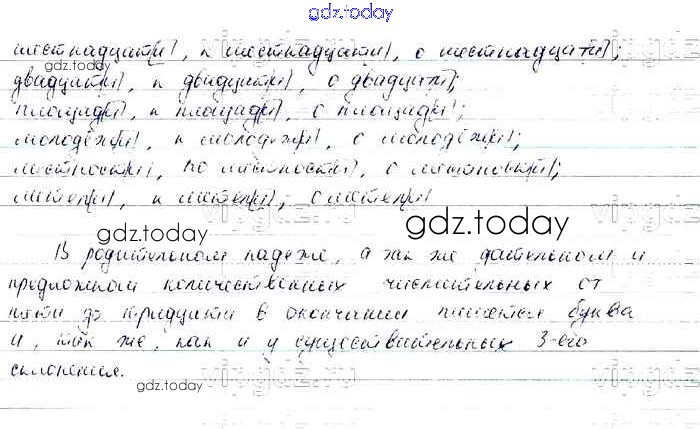 gdz.today
шестнадцат[и], к шестнадцат[и], о шестнадцат[и];
двадцат[и], к двадцат[и], о двадцат[и];
gdz.today
площад[и], к площад[и], о площад[и];
молодёж[и], к молодёж[и], о молодёж[и];
местност[и], по местност[и], о местност[и];
метел[и], к метел[и], о метел[и]
gdz.today
gdz.today
В родительном падеже, а так же дательном и
предложном количественных числительных от
пяти до тридцати в окончании пишется буква
и, так же, как и у существительных 3-его
склонения.
gdz.today